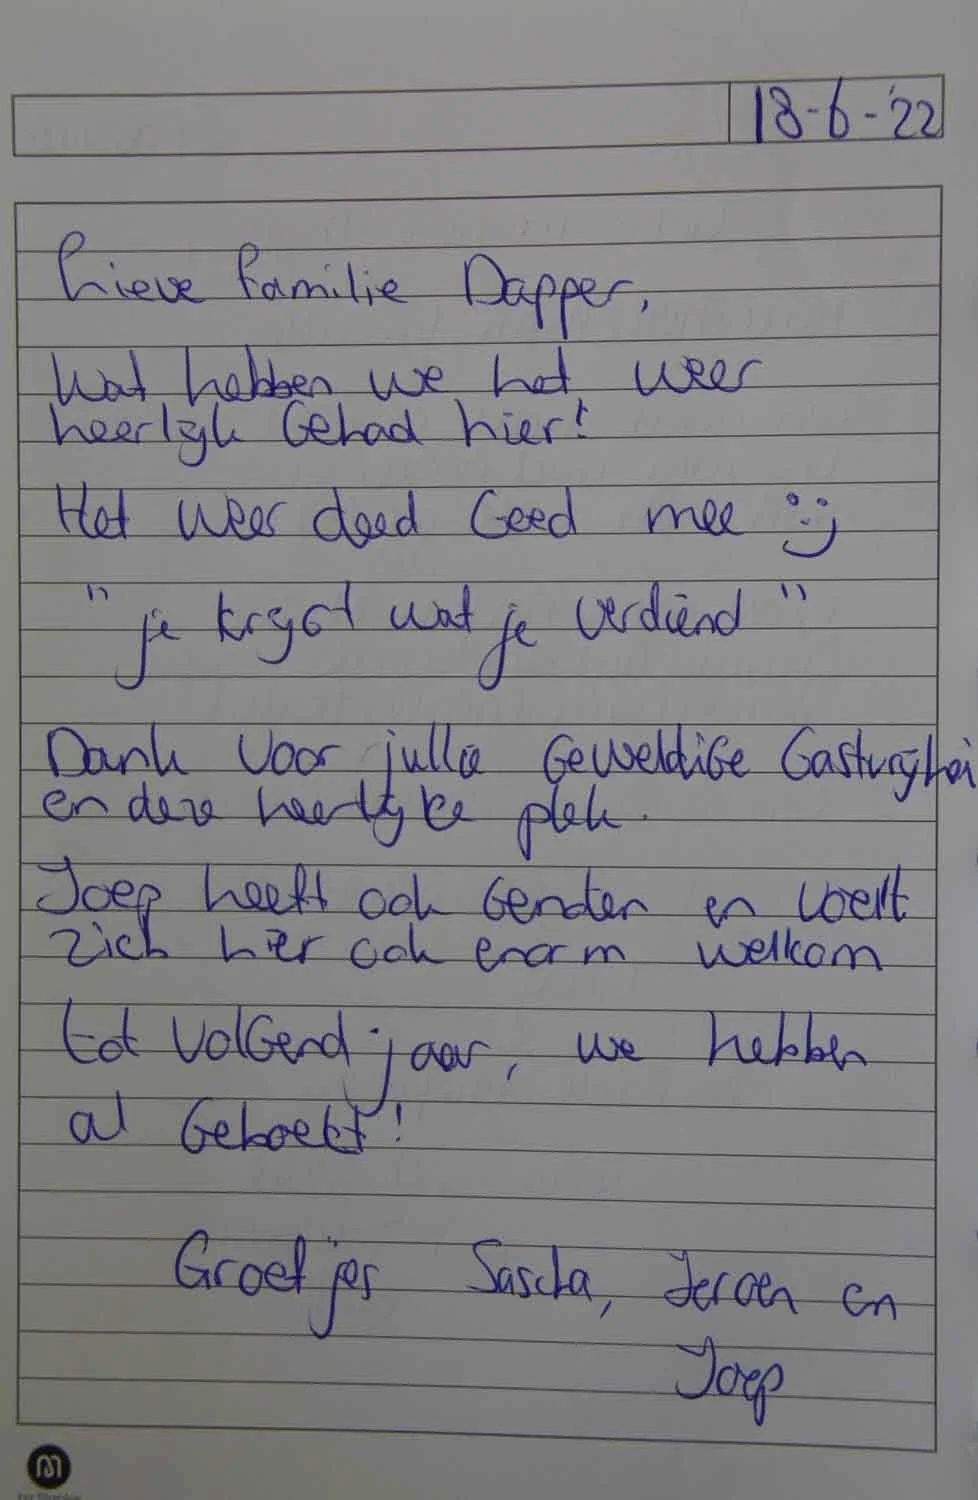 18-6-'22
Lieve familie Dapper,
Wat hebben we het weer
heerlijk Gehad hier!
Het weer deed Goed mee :-)
"je krijgt wat je verdiend"
Dank voor jullie Geweldige Gastvrijhei
en deze heerlijke plek.
Joep heeft ook Genoten en voelt
zich hier ook enorm welkom
tot volGend jaar, we hebben
al Geboekt!
Groetjes Sascha, Jeroen en
Joep